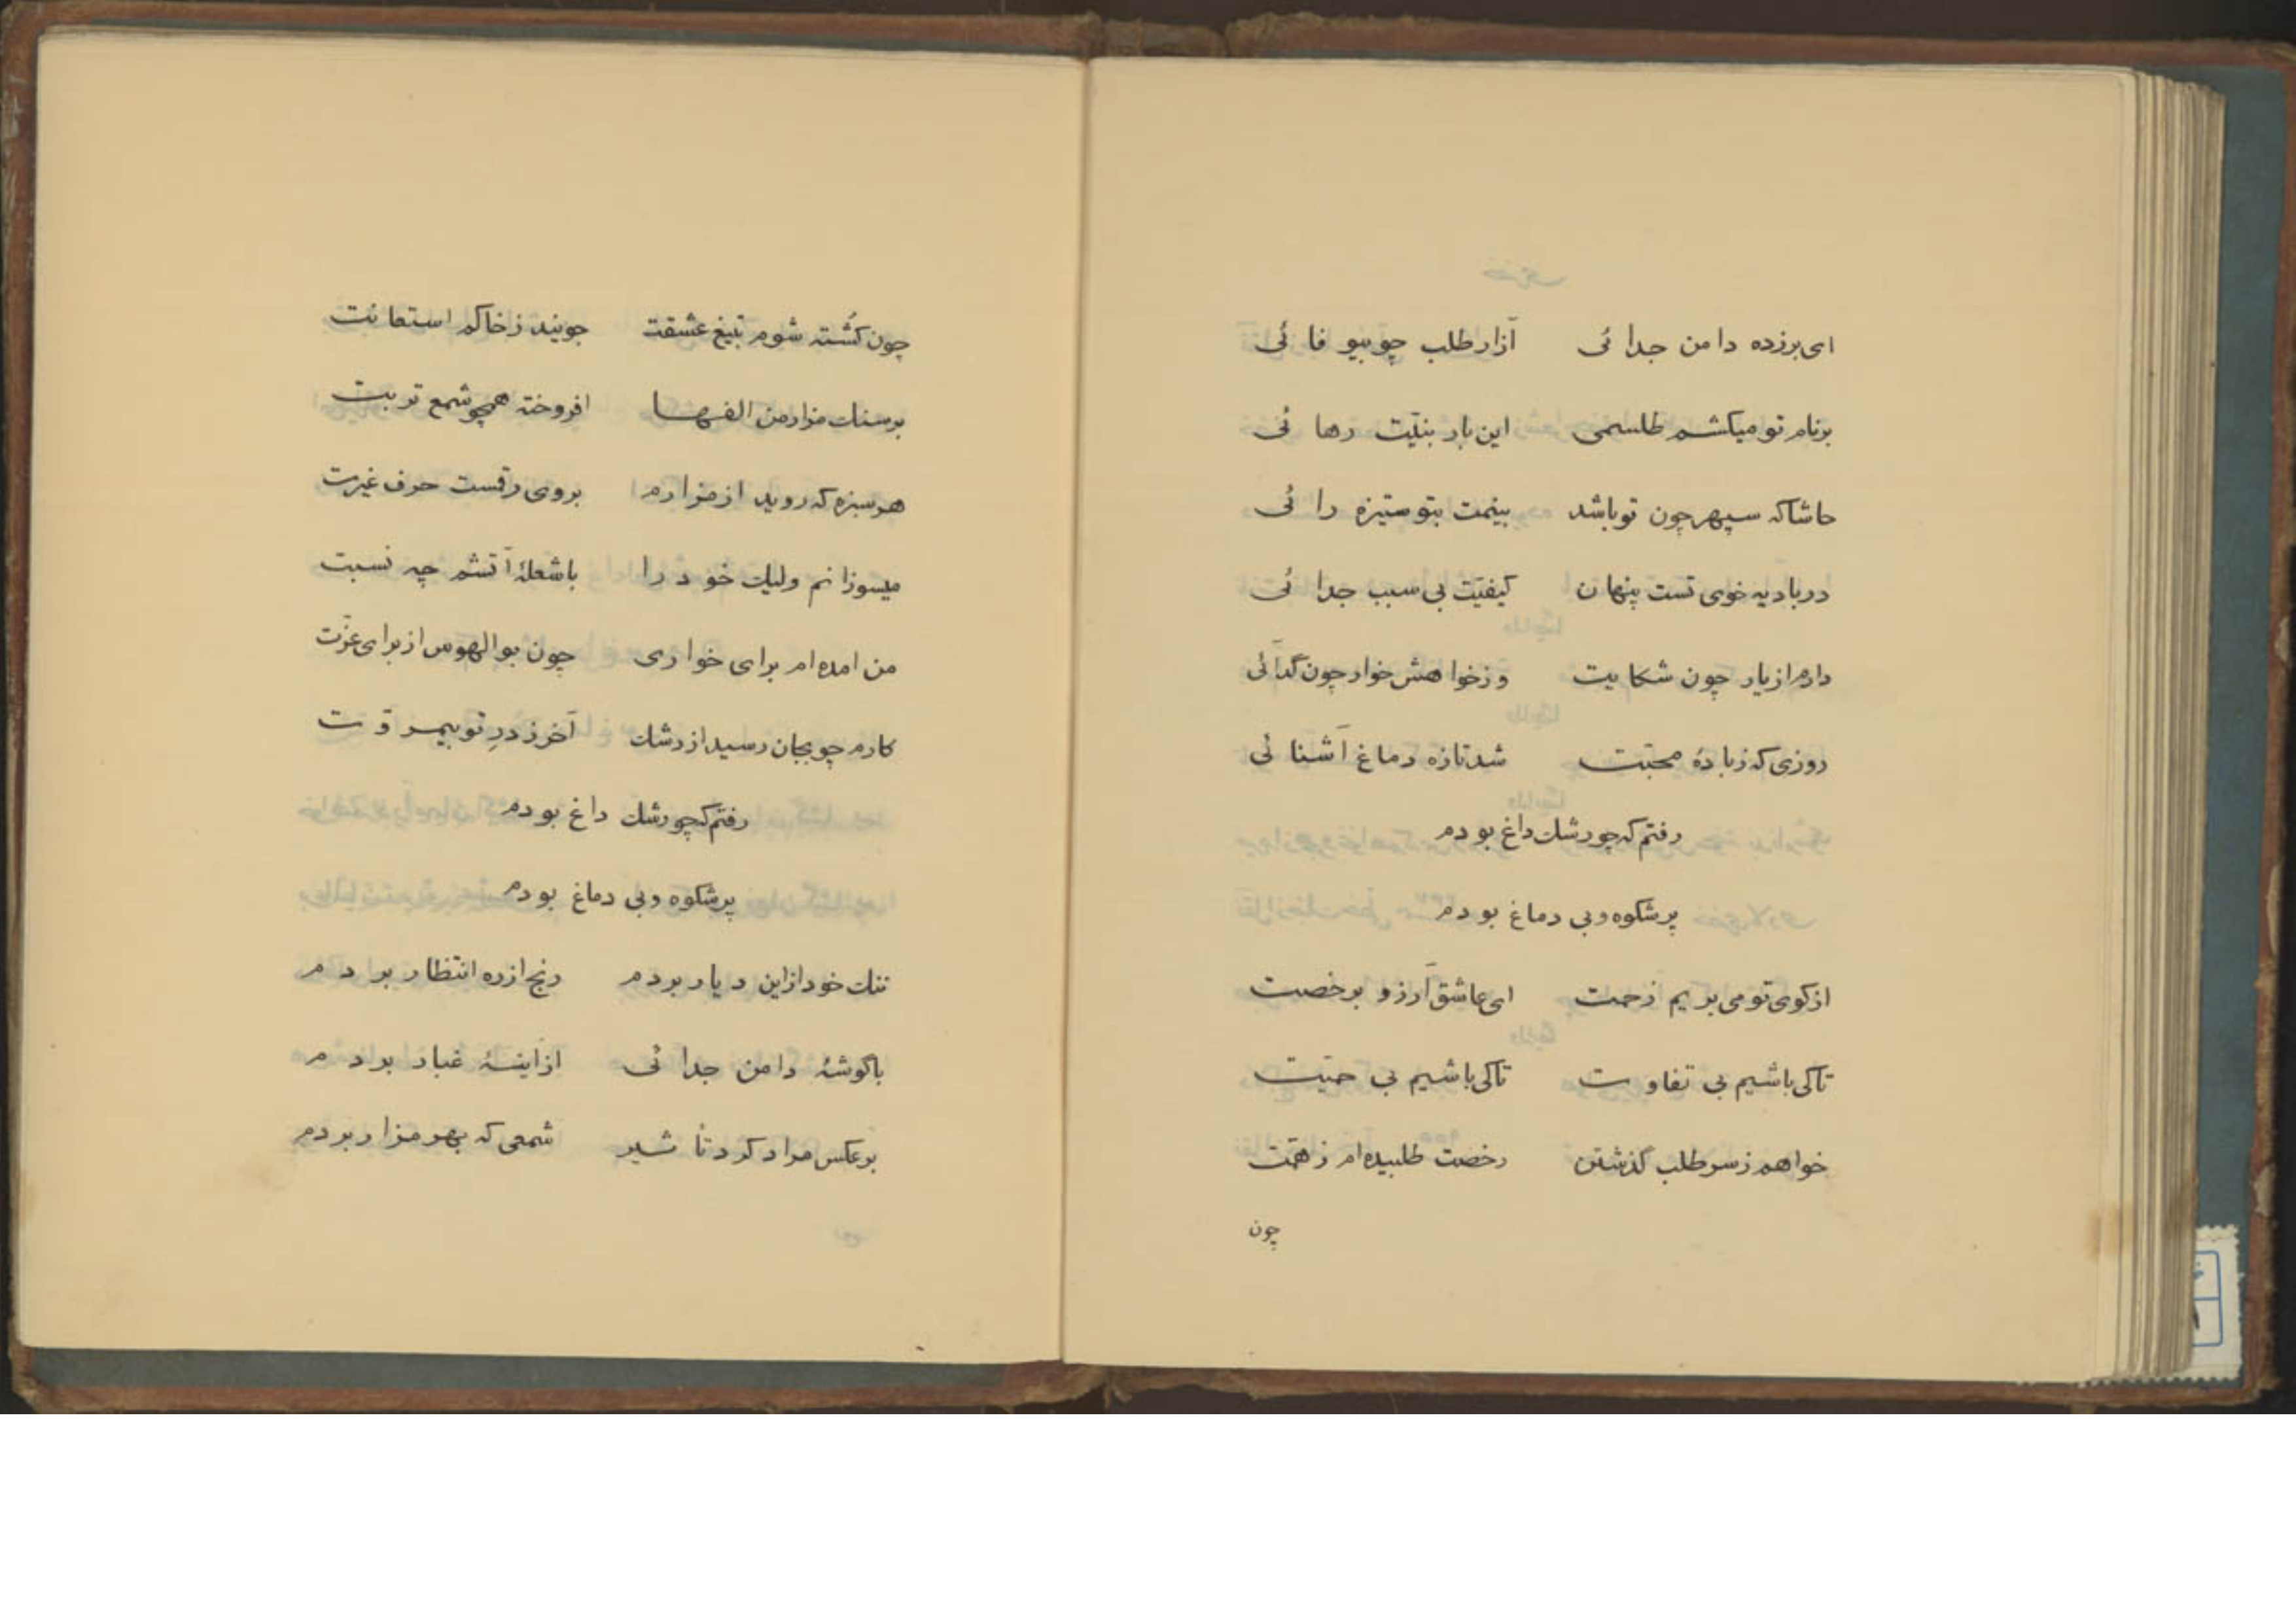 ای برزده دامن جدائی آزار طلب چو بیوفائی
برنام تو میکشم طلسمی این بار بنیّت رهائی
حاشا که سپهر چون تو باشد بینمت بتو ستیزه رائی
در بادیه خوی تست پنهان کیفیّت بی سبب جدائی
دارم از یار چون شکایت وز خواهش خوار چون گدائی
روزی که ز بادهٔ محبّت شد تازه دماغ آشنائی
رفتم که چو رشك داغ بودم
پرشکوه و بی دماغ بودم
از کوی تو می بریم زحمت ای عاشق آرزو برخصت
تاکی باشیم بی تفاوت تاکی باشیم بی حمیّت
خواهم ز سر طلب گذشتن رخصت طلبیده ام ز همّت
چون
چون کُشته شوم بتیغ عشقت جویند ز خاکم استعانت
برسنك مزار من الفها افروخته همچو شمع تربت
هر سبزه که روید از مزارم بروی رقمست حرف غیرت
میسوزانم ولیك خود را با شعلهٔ آتشم چه نسبت
من امده ام برای خواری چون بوالهوس از برای عزّت
کارم چو بجان رسید از رشك آخر ز درِ تو بیمروّت
رفتم که چو رشك داغ بودم
پرشکوه و بی دماغ بودم
ننك خود از این دیار بردم رنج از ره انتظار بردم
با گوشهٔ دامن جدائی از اینهٔ غبار بردم
بر عکس مراد کرد تأثیر شمعی که بهر مزار بردم